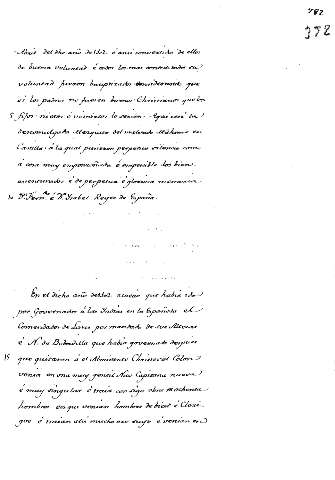 782
392
Abril del dho año de 1502 é ansi convertidos de ellos
de buena voluntad é todos los mas contra toda su
voluntad fueron bauptizados considerando que
si los padres no fuesen buenos Christianos que los
5 fijos nietos é viznietos lo serian. Aqui cesó la
descomulgada Mezquita del malvado Mahoma en
Castilla: á la qual pusieron perpetuo silencio como
á cosa muy enponzoñada é empecible los bien
aventurados é de perpetua é gloriosa memoria
10 Dn. Ferndo. é Da. Isabel Reyes de España.
En el dicho año de 1502 acaeció que habia ido
por Governador á las Indias en la Española el
Comendador de Lares por mandado de sus Altezas
é N. de Bobadilla que habia governado despues
15 que quitaron á el Almirante Christoval Colon
venia en una muy gentil Nao Capitana nueva
é muy singular é traia con sigo otros muchos
hombres en que venian hombres de bien é Cleri-
gos é traian allí mucho oro suyo é venian en